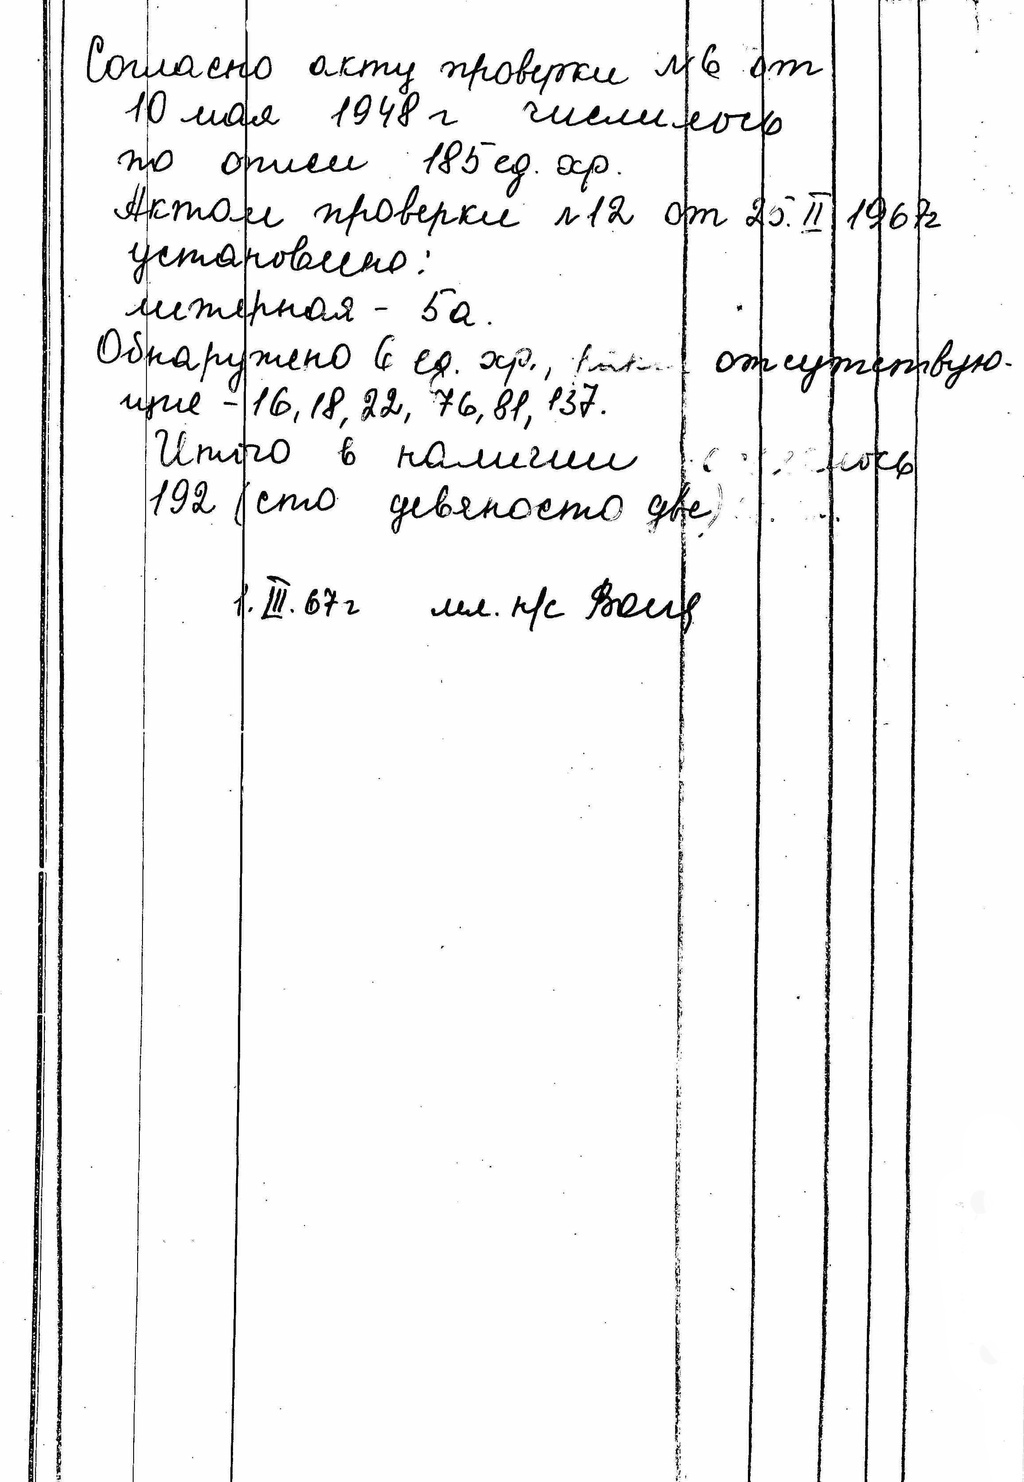 Согласно акту проверки №6 от
10 мая 1948 г числилось
по описи 185 ед. хр.
Актом проверки №12 от 25.II 1967г
установлено:
литерная - 5а.
Обнаружено 6 ед. хр., отсутствую-
щие - 16, 18, 22, 76, 81, 137.
Итого в наличии
192 (сто девяносто две)
1.III.67г мл. н/с